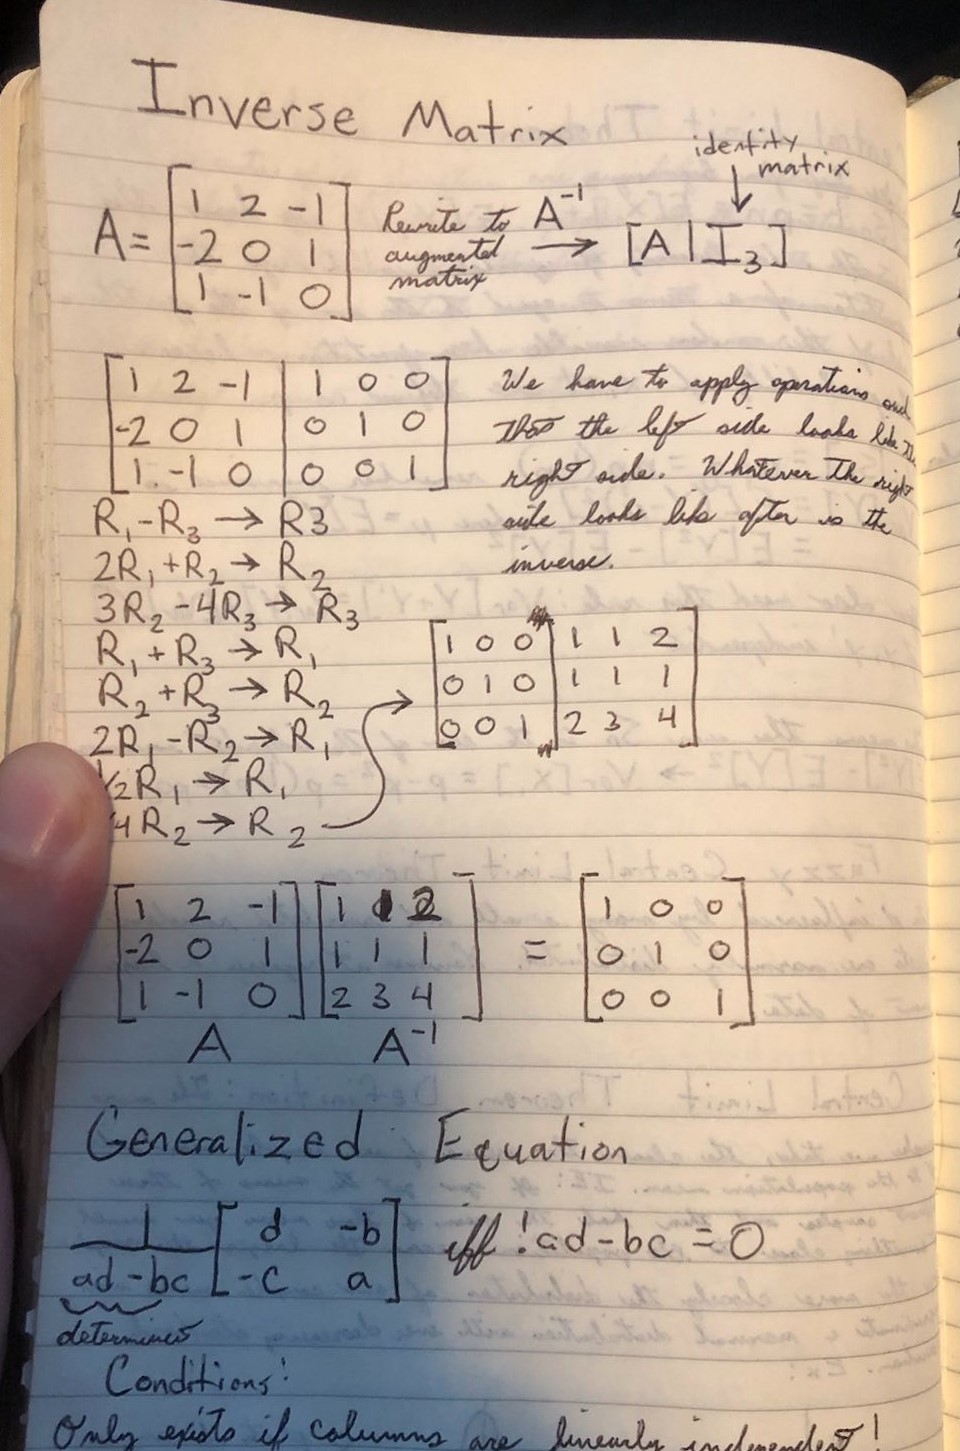 Inverse Matrix
identity
matrix
A = [1 2 -1
-2 0 1
1 -1 0]
Rewrite to
augmented
matrix
A⁻¹
→ [A | I₃]
[1 2 -1 | 1 0 0
-2 0 1 | 0 1 0
1 -1 0 | 0 0 1]
We have to apply operations such
that the left side looks like the
right side. Whatever the right
side looks like after is the
inverse.
R₁ - R₃ → R3
2R₁ + R₂ → R₂
3R₂ - 4R₃ → R₃
R₁ + R₃ → R₁
R₂ + R₃ → R₂
2R₁ - R₂ → R₁
½R₁ → R₁
4R₂ → R₂
[1 0 0 | 1 1 2
0 1 0 | 1 1 1
0 0 1 | 2 3 4]
[1 2 -1
-2 0 1
1 -1 0]
A
[1 1 2
1 1 1
2 3 4]
A⁻¹
= [1 0 0
0 1 0
0 0 1]
Generalized Equation
1
ad - bc
[d -b
-c a]
iff !ad - bc = 0
determinant
Conditions:
Only exists if columns are linearly independent!